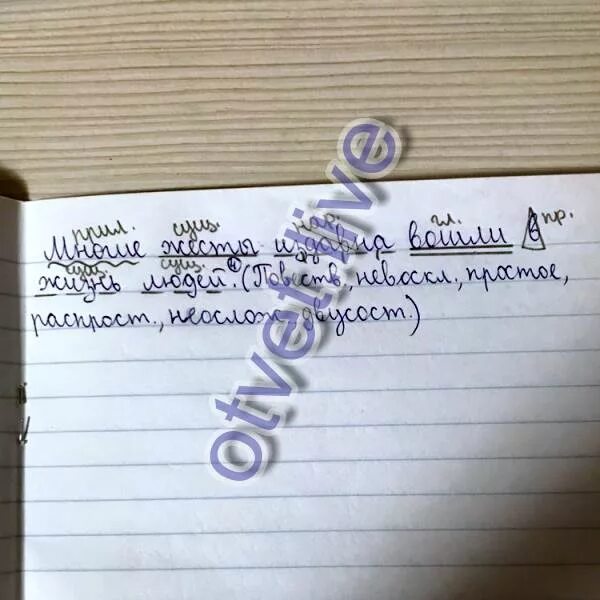 прил. сущ. нар. гл. пр.
Многие жесты издавна вошли в
сущ. сущ. 4
жизнь людей. (Повеств., невоскл., простое,
распрост., неослож., двусост.)
otvet.live